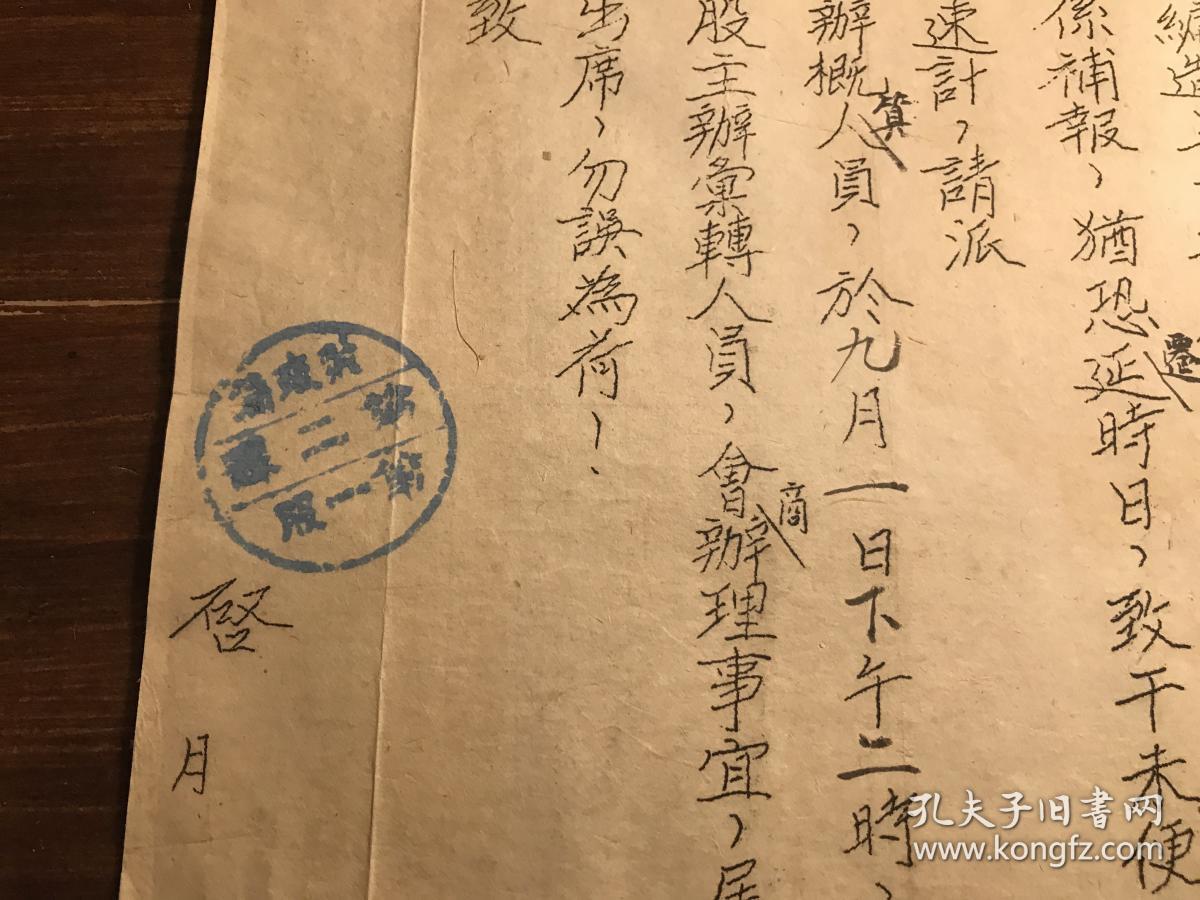 編造
係補報、猶恐延時日、致干未便
還
速計、請派
辦概人員、於九月一日下午二時、
算
股主辦彙轉人員、會辦理事宜、屆
商
出席、勿誤為荷！
致
啓
月
第二
第一股
孔夫子旧书网
www.kongfz.com